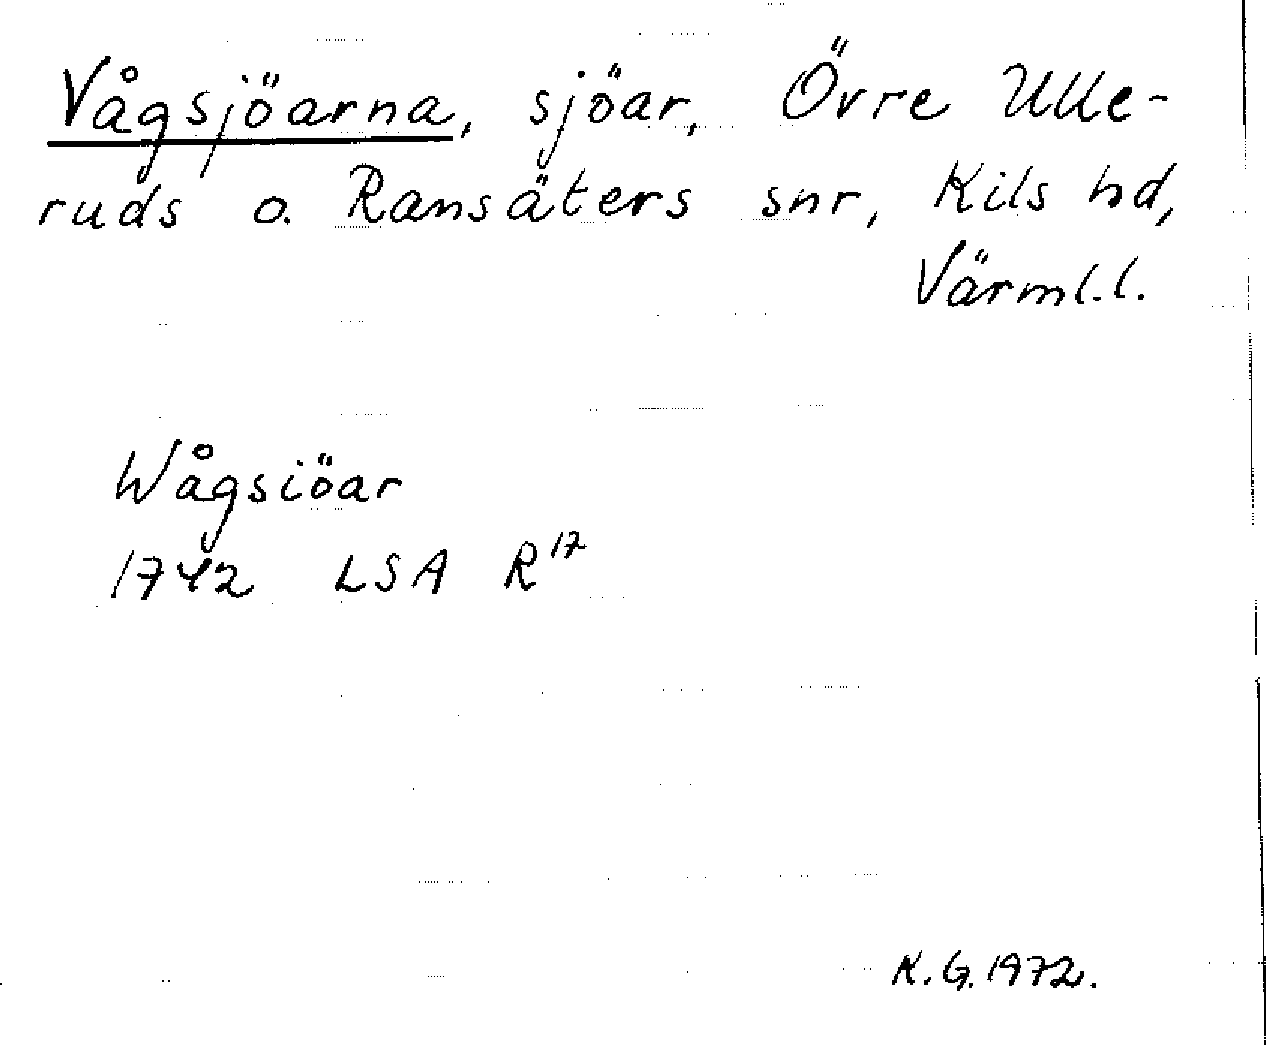 Vågsjöarna, sjöar, Övre Ulle-
ruds o. Ransäters snr, Kils hd,
Värml.l.
Wågsiöar
1742 LSA R17
K.G. 1972.